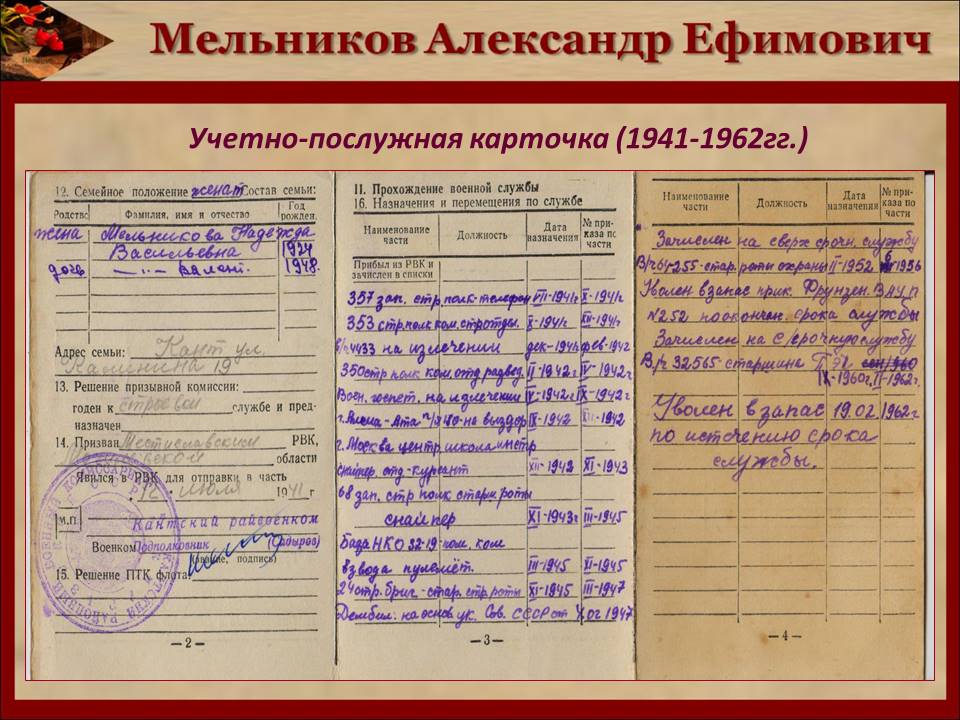 Мельников Александр Ефимович
Учетно-послужная карточка (1941-1962гг.)
12. Семейное положение женат Состав семьи:
Родство Фамилия, имя и отчество Год рожден.
жена Мельникова Надежда
Васильевна 1924
дочь —„— Вален. 1948.
Адрес семьи: Кант ул.
Калинина 19
13. Решение призывной комиссии:
годен к строевой службе и пред-
назначен
14. Призван Мстиславским РВК,
области
Явился в РВК для отправки в часть
12 июля 1941 г
М.П. Кантский райвоенком
Военком Подполковник
(звание, подпись)
15. Решение ПТК флота
— 2 —
II. Прохождение военной службы
16. Назначения и перемещения по службе
Наименование части Должность Дата назначения № при-каза по части
Прибыл из РВК и
зачислен в списки
357 зап. стр полк-телефон VII-1941г X-1941г
353 стр полк ком. стр отдел. X-1941г XII-1941г
в/ч 4433 на излечении дек-1941г фев-1942
350 стр полк ком. отд развед. II-1942г V-1942г
Воен. госпит. на излечении V-1942г IX-1942г
г. Алма-Ата на выздор IX-1942 XII-1942
г. Москва центр школа инстр
снайпер. отд-курсант XII-1942 XI-1943
68 зап. стр полк старш роты
снайпер XI-1943г III-1945
База НКО 32-19 пом. ком
взвода пулемёт. III-1945 XI-1945
24 стр. бриг. стар. стр. роты XI-1945 III-1947
Дембил. на основ ук. Сов. СССР от 1947
— 3 —
Наименование части Должность Дата назначения № при-каза по части
Зачислен на сверх срочн. службу
В/ч 64255-стар. роты охраны II-1952 1956
Уволен в запас прик. Фрунзен.
N252 по окончен. срока службы
Зачислен на с/срочную службу
В/ч 32565 старшина
IX-1960г. II-1962г.
Уволен в запас 19.02 1962г
по истечению срока
службы.
— 4 —